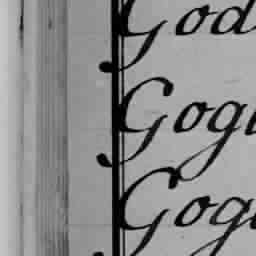 God
Gog
Gog